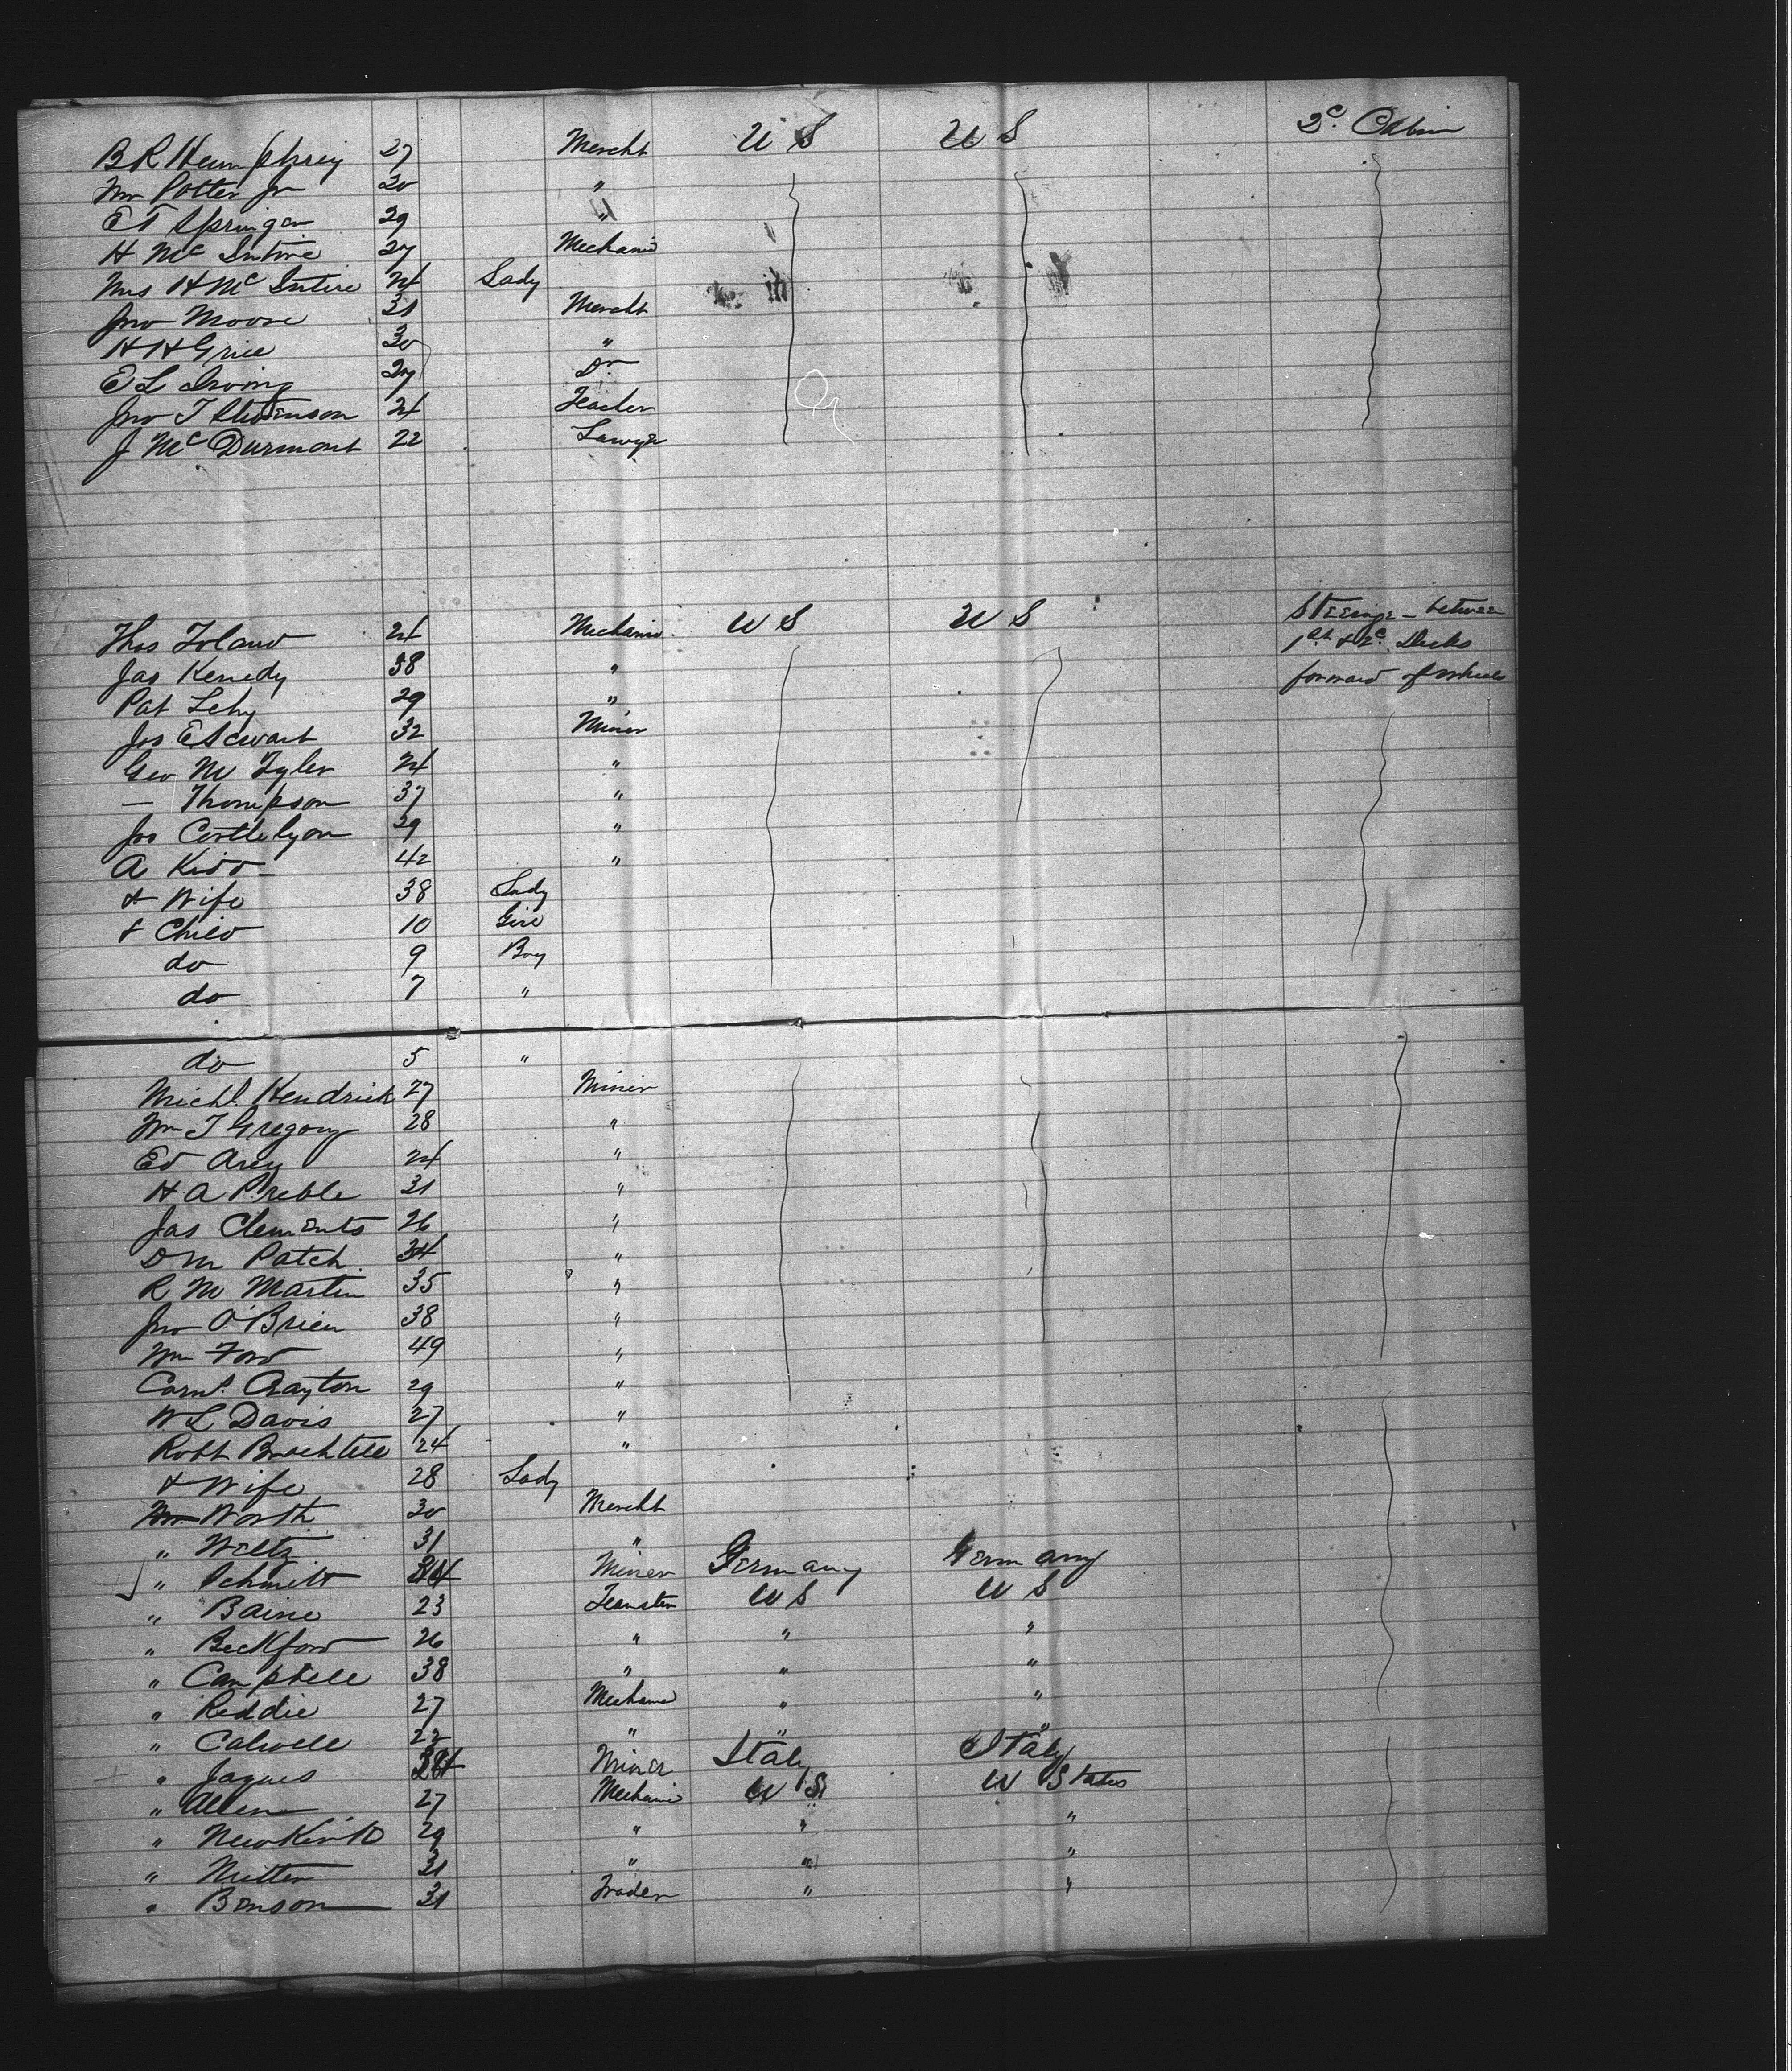 B R Humphrey 27 Mercht U S U S 2c. Cabin
Wm Potter Jr 20 "
E T Springer 29 "
H McIntire 27 Mechanic
Mrs H McIntire 24 Lady
Jno Moore 31 Mercht
H H Grice 30 "
E L Irving 27 Dr
Jno T Stevenson 24 Teacher
J McDurmont 22 Lawyer
Thos Toland 24 Mechanic U S U S Steerage - between
Jas Kenedy 38 " 1st & 2c. Decks
Pat Lehy 29 " forward of wheels
Jos E Stewart 32 Miner
Geo M Tyler 24 "
— Thompson 37 "
Jos Cortelyou 29 "
A Kidd 42 "
& Wife 38 Lady
& Child 10 Girl
do 9 Boy
do 7 "
do 5 "
Michl. Kendrick 27 Miner
Wm T Gregory 28 "
Ed Arey 24 "
H A Preble 31 "
Jas Clements 26 "
D M Patch 34 "
R M Martin 35 "
Jno O'Brien 38 "
Wm Ford 49 "
Corns. Crayton 29 "
W L Davis 27 "
Robt Bechtell 24 "
& Wife 28 Lady
North 30 Mercht
" Weltz 31 "
" Schmidt 34 Miner Germany Germany
" Baine 23 Teamster U S U S
" Beckford 26 " " "
" Campbell 38 " " "
" Reddie 27 Mechanic " "
" Calwell 22 " " "
" Jaques Miner Italy Italy
" Allen 27 Mechanic U S U States
" Newkirk 29 " " "
" Nutter 31 " " "
" Benson 31 Trader " "